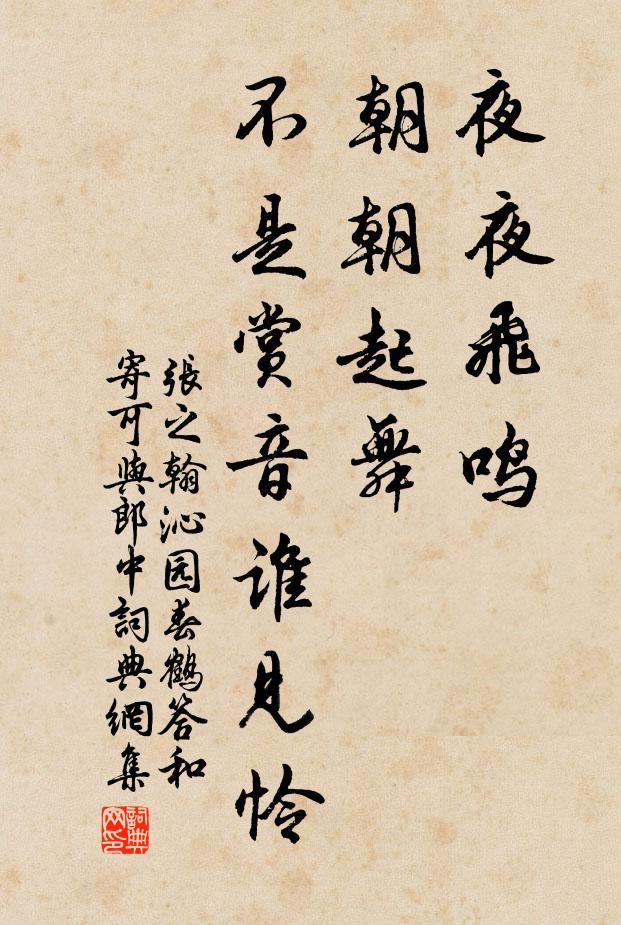 夜夜飛鳴
朝朝起舞
不是賞音誰見怜
張之翰沁园春鶴答和
寄可與郎中詞典網集
詞典
网印